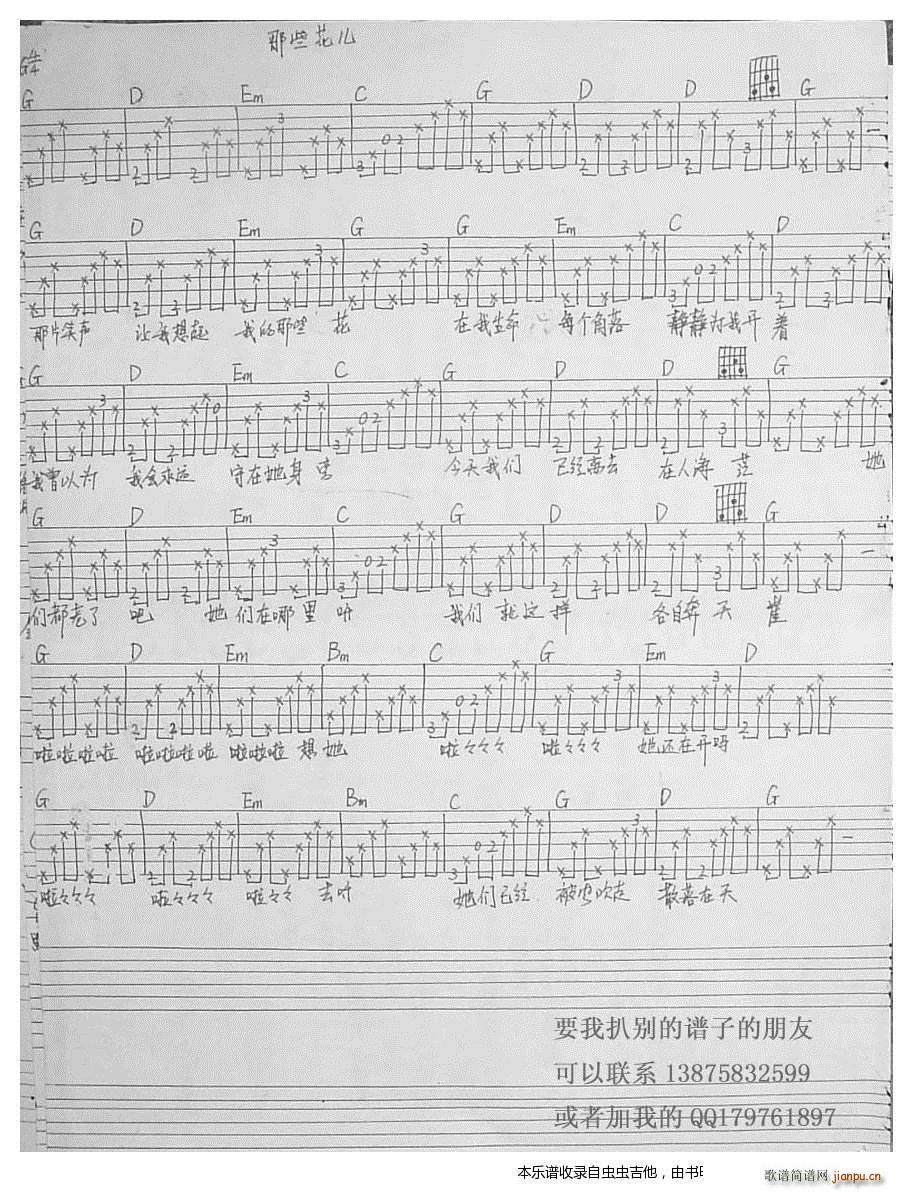 那些花儿
G 4/4
G D Em C G D D G
G D Em G G Em C D
那片笑声 让我想起 我的那些 花 在我生命 每个角落 静静为我开 着
G D Em C G D D G
我曾以为 我会永远 守在她身旁 今天我们 已经离去 在人海 茫 她
G D Em C G D D G
们都老了 吧 她们在哪里 呀 我们 就这样 各自奔 天 崖
G D Em Bm C G Em D
啦啦啦啦 啦啦啦啦 啦啦啦 想她 啦々々々 啦々々々 她还在开吗
G D Em Bm C G D G
啦々々々 啦々々々 啦々々 去呀 她们已经 被风吹走 散落在天
要我扒别的谱子的朋友
可以联系 13875832599
或者加我的 QQ179761897
本乐谱收录自虫虫吉他，由书
歌谱简谱网 jianpu.cn